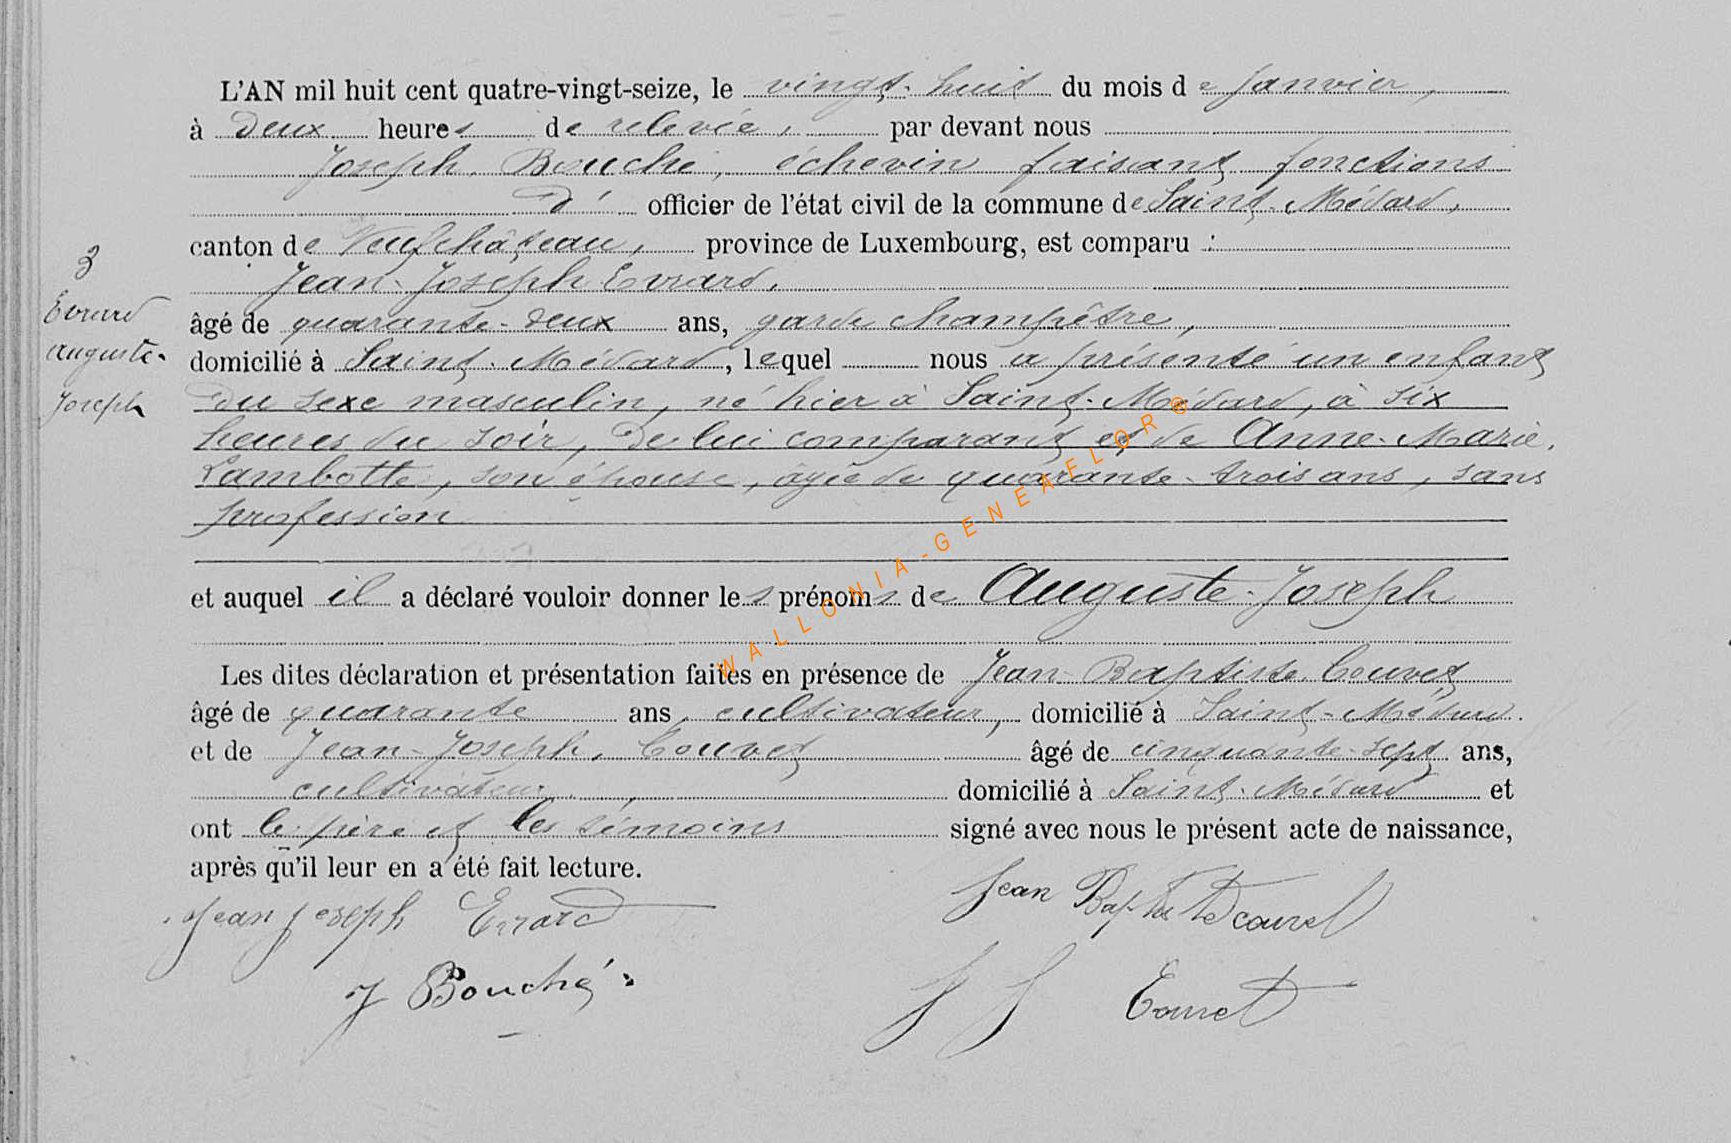 L'AN mil huit cent quatre-vingt-seize, le vingt-huit du mois de janvier,
à deux heures de relevée, par devant nous
Joseph Bouché, échevin faisant fonctions
d' officier de l'état civil de la commune de Saint-Médard,
canton de Neufchâteau, province de Luxembourg, est comparu :
Jean-Joseph Evrard,
âgé de quarante-deux ans, garde champêtre,
domicilié à Saint-Médard, lequel nous a présenté un enfant
du sexe masculin, né hier à Saint-Médard, à six
heures du soir, de lui comparant et de Anne-Marie
Lambotte, son épouse, âgée de quarante-trois ans, sans
profession
3
Evrard
Auguste-
Joseph
et auquel il a déclaré vouloir donner les prénoms de Auguste-Joseph
Les dites déclaration et présentation faites en présence de Jean-Baptiste Couvet
âgé de quarante ans, cultivateur, domicilié à Saint-Médard.
et de Jean-Joseph, Couvet âgé de cinquante-sept ans,
cultivateur, domicilié à Saint-Médard et
ont le père et les témoins signé avec nous le présent acte de naissance,
après qu'il leur en a été fait lecture.
Jean Joseph Evrard
Jean Bap
J Bouché
J J
WALLONIA-GENEAFLOR®